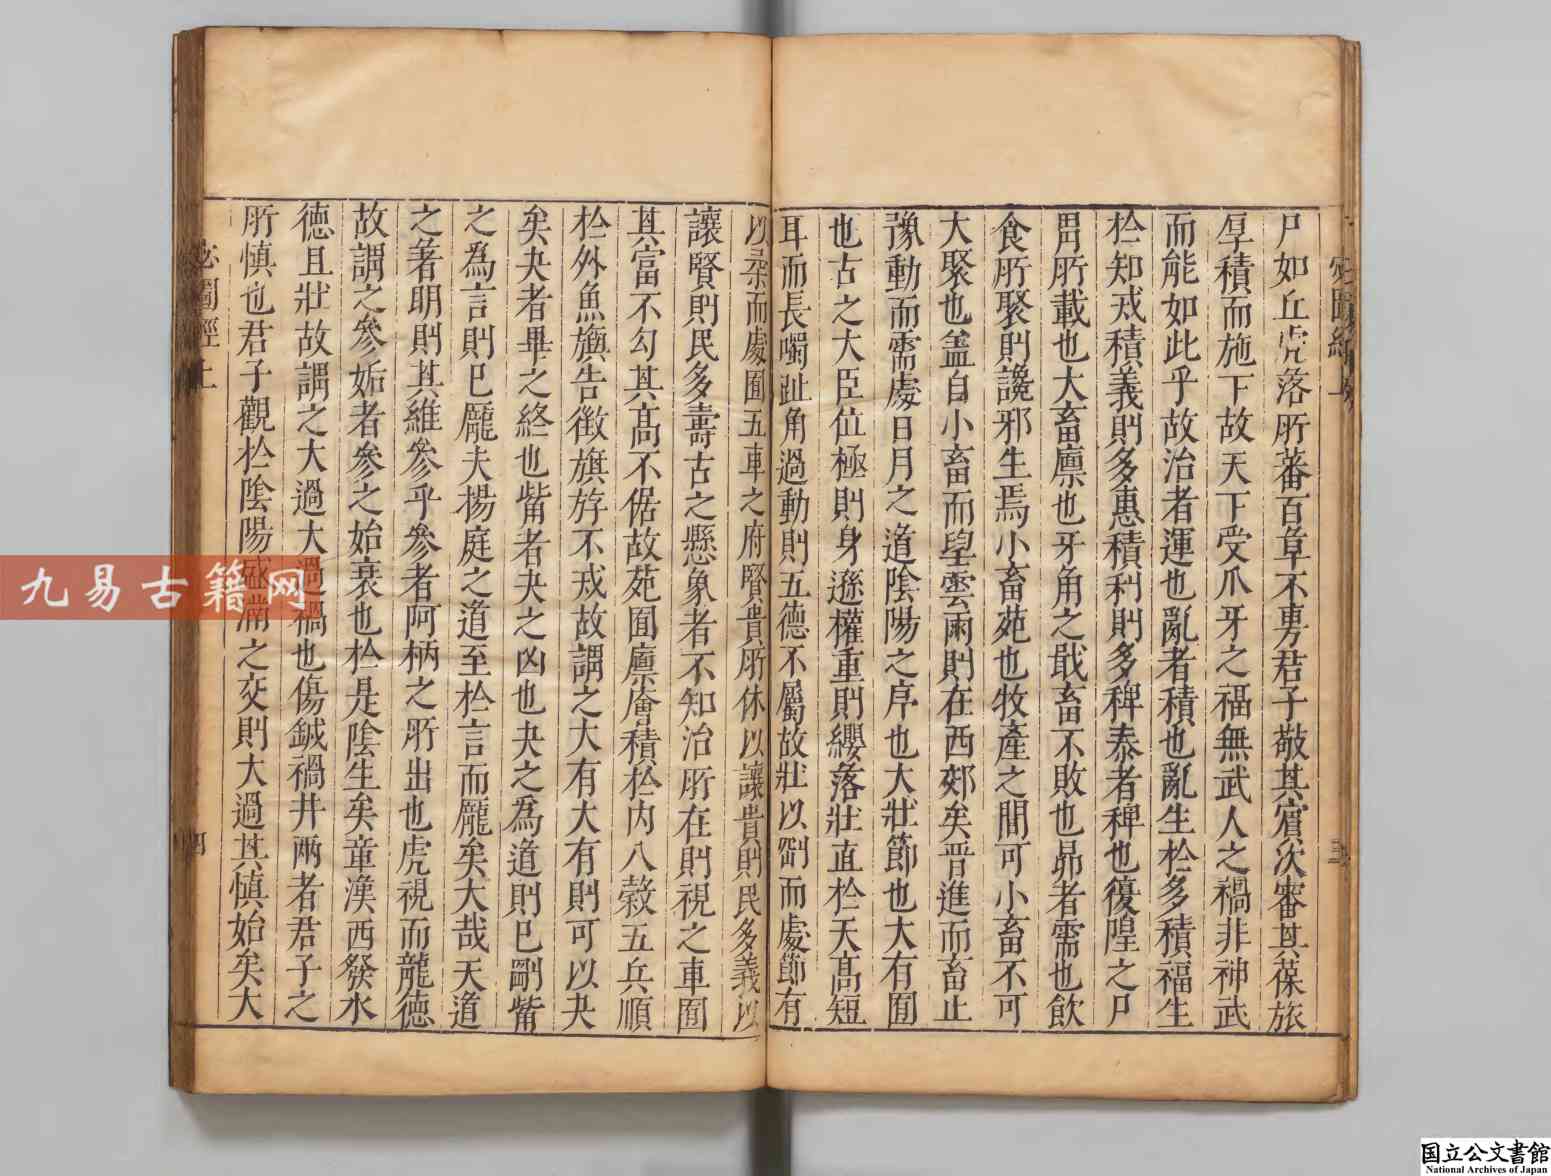 尸如丘虎落所蕃百章不軣君子敬其賓次審其葆旅
厚積而施下故天下受爪牙之福無武人之禍非神武
而能如此乎故治者運也亂者積也亂生於多積福生
於知戒積義則多惠積利則多稗泰者稗也復隍之尸
胃所載也大畜廪也牙角之戢畜不敗也昴者需也飲
食所聚則讒邪生焉小畜苑也牧産之間可小畜不可
大聚也葢自小畜而望雲雨則在西郊矣晋進而畜止
豫動而需處日月之道隂陽之序也大壯節也大有囿
也古之大臣位極則身遜權重則纓落壯直於天髙短
耳而長噣趾角過動則五德不屬故壯以罰而處節有
以朶而處囿五車之府賢貴所休以讓貴則民多義以
讓賢則民多壽古之懸象者不知治所在則視之車囿
其富不勾其髙不倨故苑囿廪廥積於内八榖五兵順
於外魚旟告徵旗斿不戒故謂之大有大有則可以夬
矣夬者畢之終也觜者夬之凶也夬之為道則已剛觜
之為言則已厖夫揚庭之道至於言而厖矣大哉天道
之著明則其維參乎參者阿柄之所出也虎視而龍德
故謂之參姤者參之始衰也於是隂生矣童漢西發水
德且壯故謂之大過大過禍也傷鉞禍井兩者君子之
所慎也君子觀於隂陽盛滿之交則大過其慎始矣大
三
四
九易古籍网
国立公文書館
National Archives of Japan